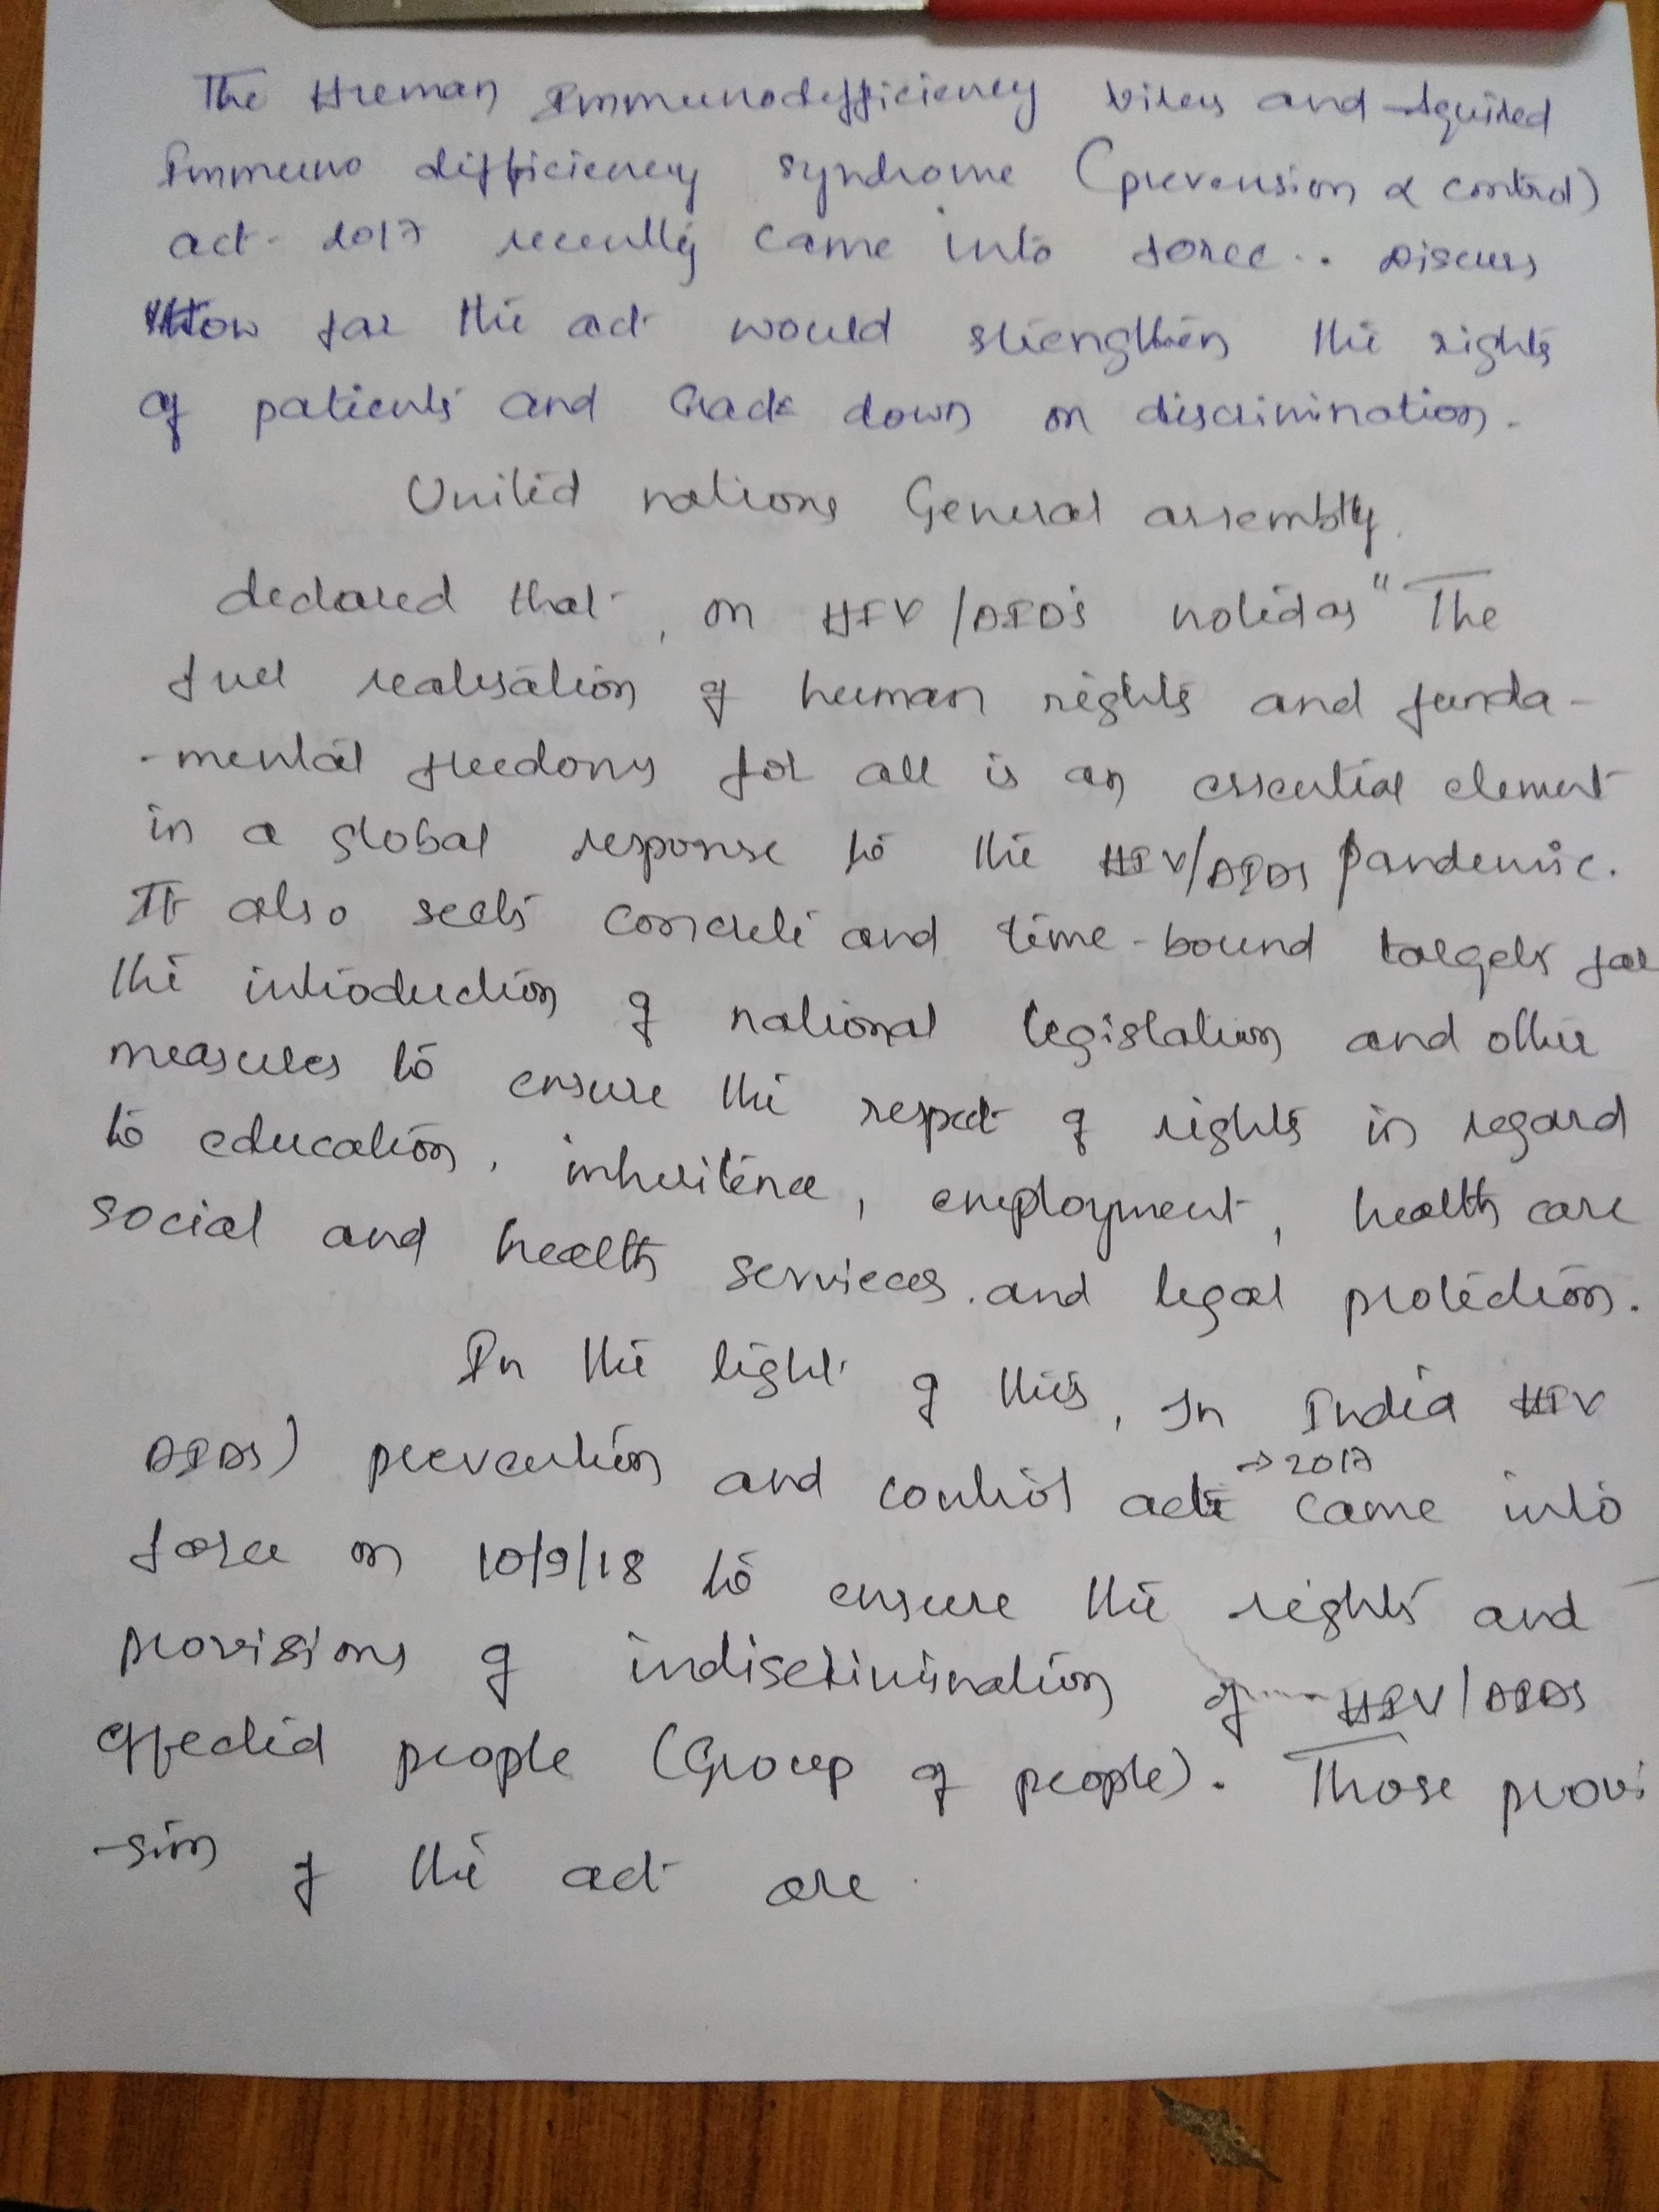 The Human Immunodefficiency virus and Aquired
Immuno difficiency syndrome (prevension & control)
act- 2017 recently came into force.. Discuss
How far the act would strengthen the rights
of patients and Crack down on discrimination.
United nations General assembly.
declared that, on HIV/AIDS noted as "The
full realisation of human rights and funda-
-mental freedoms for all is an essential element
in a global response to the HIV/AIDS pandemic.
It also sets concrete and time-bound targets for
the introduction of national legislation and other
measures to ensure the respect of rights in regard
to education, inheritence, employment, health care
social and health services. and legal protection.
In the light of this, In India HIV
AIDS) prevention and control act →2017 came into
force on 10/9/18 to ensure the rights and
provisions of indiscrimination of HIV/AIDS
effected people (Group of people). Those provi
-sion of the act are.